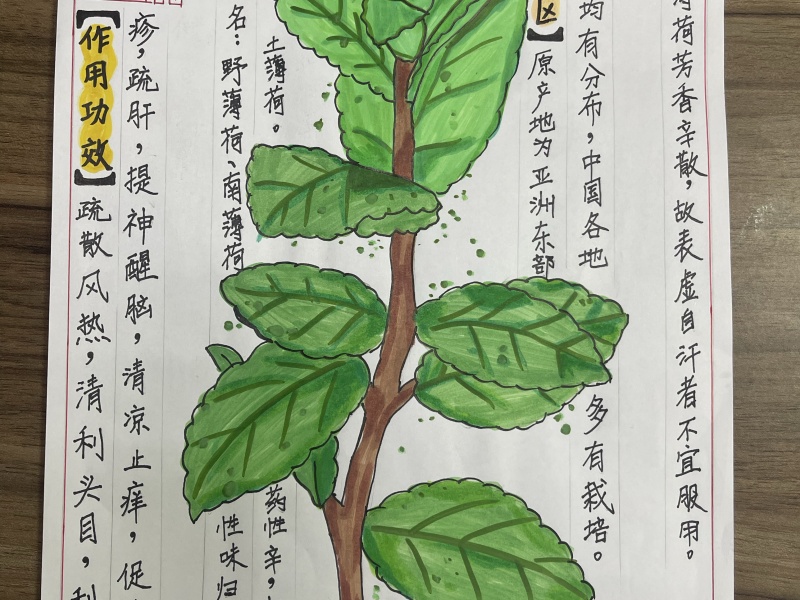 【作用功效】疏散风热,清利头目,
疹,疏肝,提神醒脑,清凉止痒,促
名:野薄荷、南薄荷
性味归
土薄荷。
药性辛,
区】原产地为亚洲东部
均有分布,中国各地
多有栽培。
薄荷芳香辛散,故表虚自汗者不宜服用。